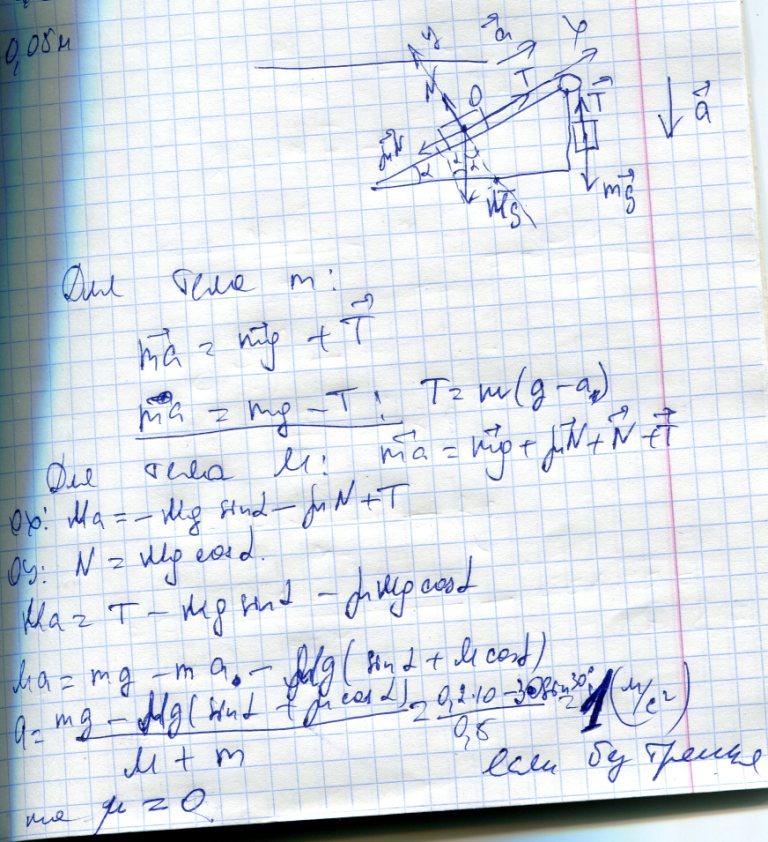 0,05м
y a x
N O T T a
μN α α Mg mg
Для тела m:
ma = mg + T
ma = mg - T; T = m(g - a)
Для тела M: ma = mg + μN + N + T
ox: Ma = - Mg sinα - μN + T
oy: N = Mg cosα.
Ma = T - Mg sinα - μMg cosα
Ma = mg - ma - Mg(sinα + μ cosα)
a = mg - Mg(sinα + μ cosα) / M + m = 0,2·10 - / 0,5 = 1 (м/с²)
если бу трения
то μ = 0